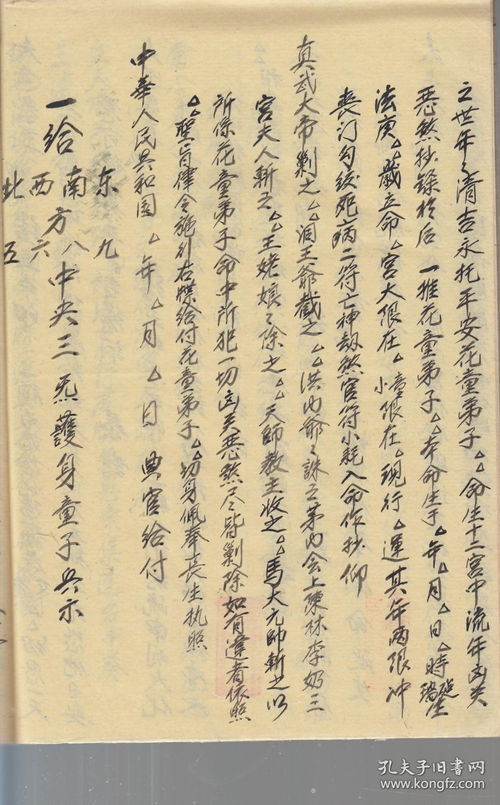 之世年々清吉永托平安花童弟子△△命生十二宫中流年凶关
恶煞抄録於后 一推花童弟子△本命生于△年△月△日△時诞生
法庚△△歲立命△宫大限在△童小限在△現行△運其年两限冲
丧门勾绞死病二符亡神劫煞官符小耗入命作抄仰
真武大帝剿之△△洞王爺截之△△洪内爺々誅之茅内会上陳林李奶三
宫夫人斬之△△王姥娘々除之△△天師教主收之△△馬大元帥斬之以
所保花童弟子命中所犯一切凶关恶煞尽皆剿除如有違者依照
△△聖旨律令施行右牒给付花童弟子△△切身佩奉長生执照
中華人民共和国△年△月△日 典官给付
东 九
一给南方八中央三炁護身童子吳示
西 六
北 五
孔夫子旧書网
www.kongfz.com